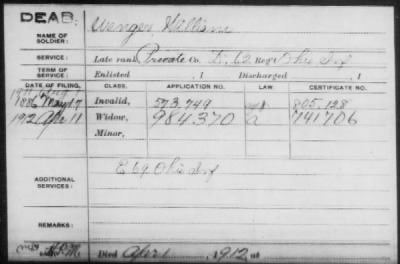 DEAD:
NAME OF SOLDIER: Wenger William
SERVICE: Late rank, Private Co. D, 62 Reg't Ohio Inf
TERM OF SERVICE: Enlisted , 1 Discharged , 1
DATE OF FILING. CLASS. APPLICATION NO. LAW. CERTIFICATE NO.
1886 Invalid, 573.749 865.128
1912 Apr 11 Widow, 984370 a 741706
Minor,
ADDITIONAL SERVICES: E 69 Ohio Inf
REMARKS:
Died Apr 1 1912, at